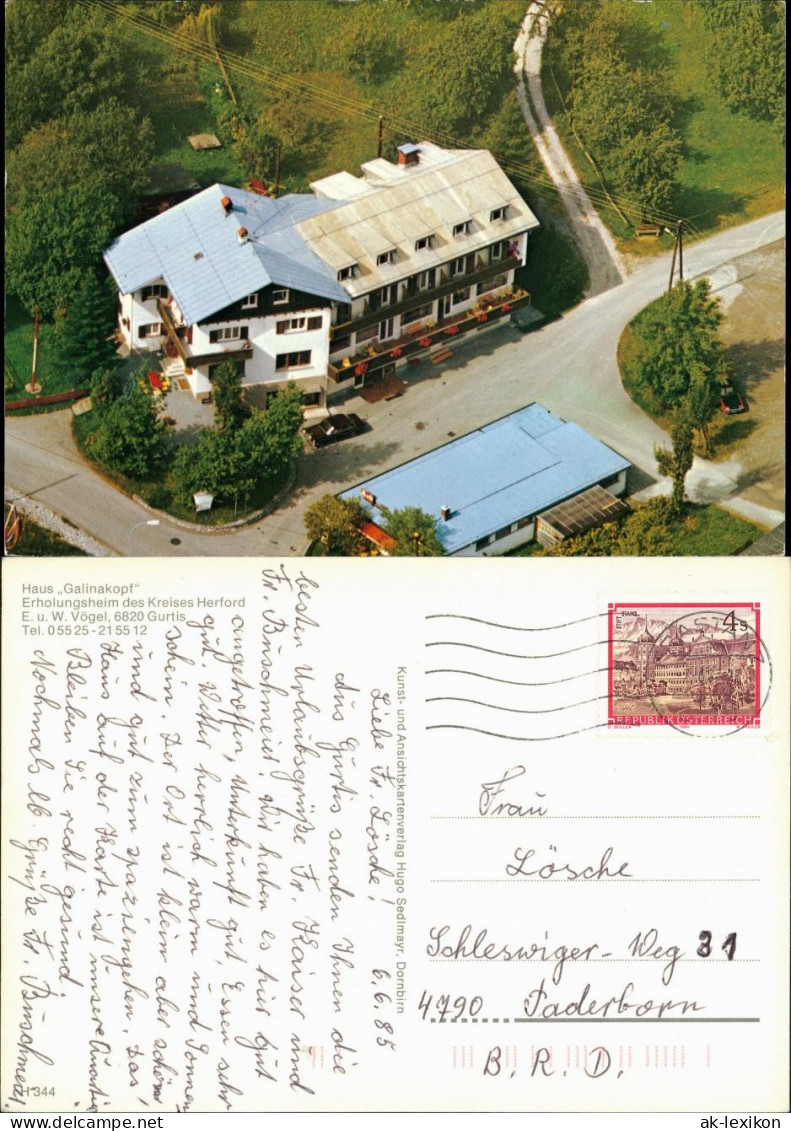 Haus „Galinakopf“
Erholungsheim des Kreises Herford
E. u. W. Vögel, 6820 Gurtis
Tel. 0 55 25 - 21 55 12
6.6.85
Liebe Fr. Lösche!
Aus Gurtis senden Ihnen die
besten Urlaubsgrüße Fr. Kaiser und
Fr. Buschmeier. Wir haben es hier gut
angetroffen, Unterkunft gut, Essen sehr
gut. Wetter herrlich warm und Sonnen
schein. Der Ort ist klein aber schön,
und gut zum spazierengehen. Das
Haus auf der Karte ist unsere Quartier
Bleiben Sie recht gesund
Nochmals lb. Grüße Fr. Buschmeier.
H 344
Kunst- und Ansichtskartenverlag Hugo Sedlmayr, Dornbirn
STIFT STAMS
4 S
REPUBLIK ÖSTERREICH
Frau
Lösche
Schleswiger-Weg 31
4790 Paderborn
B.R.D.
www.ak-ansichtskarten.de
ak-lexikon